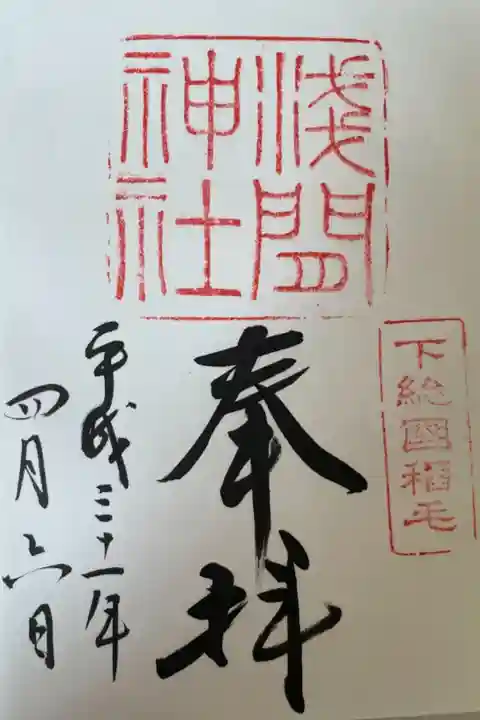 浅間
神社
下総國稲毛
奉拝
平成三十一年
四月六日